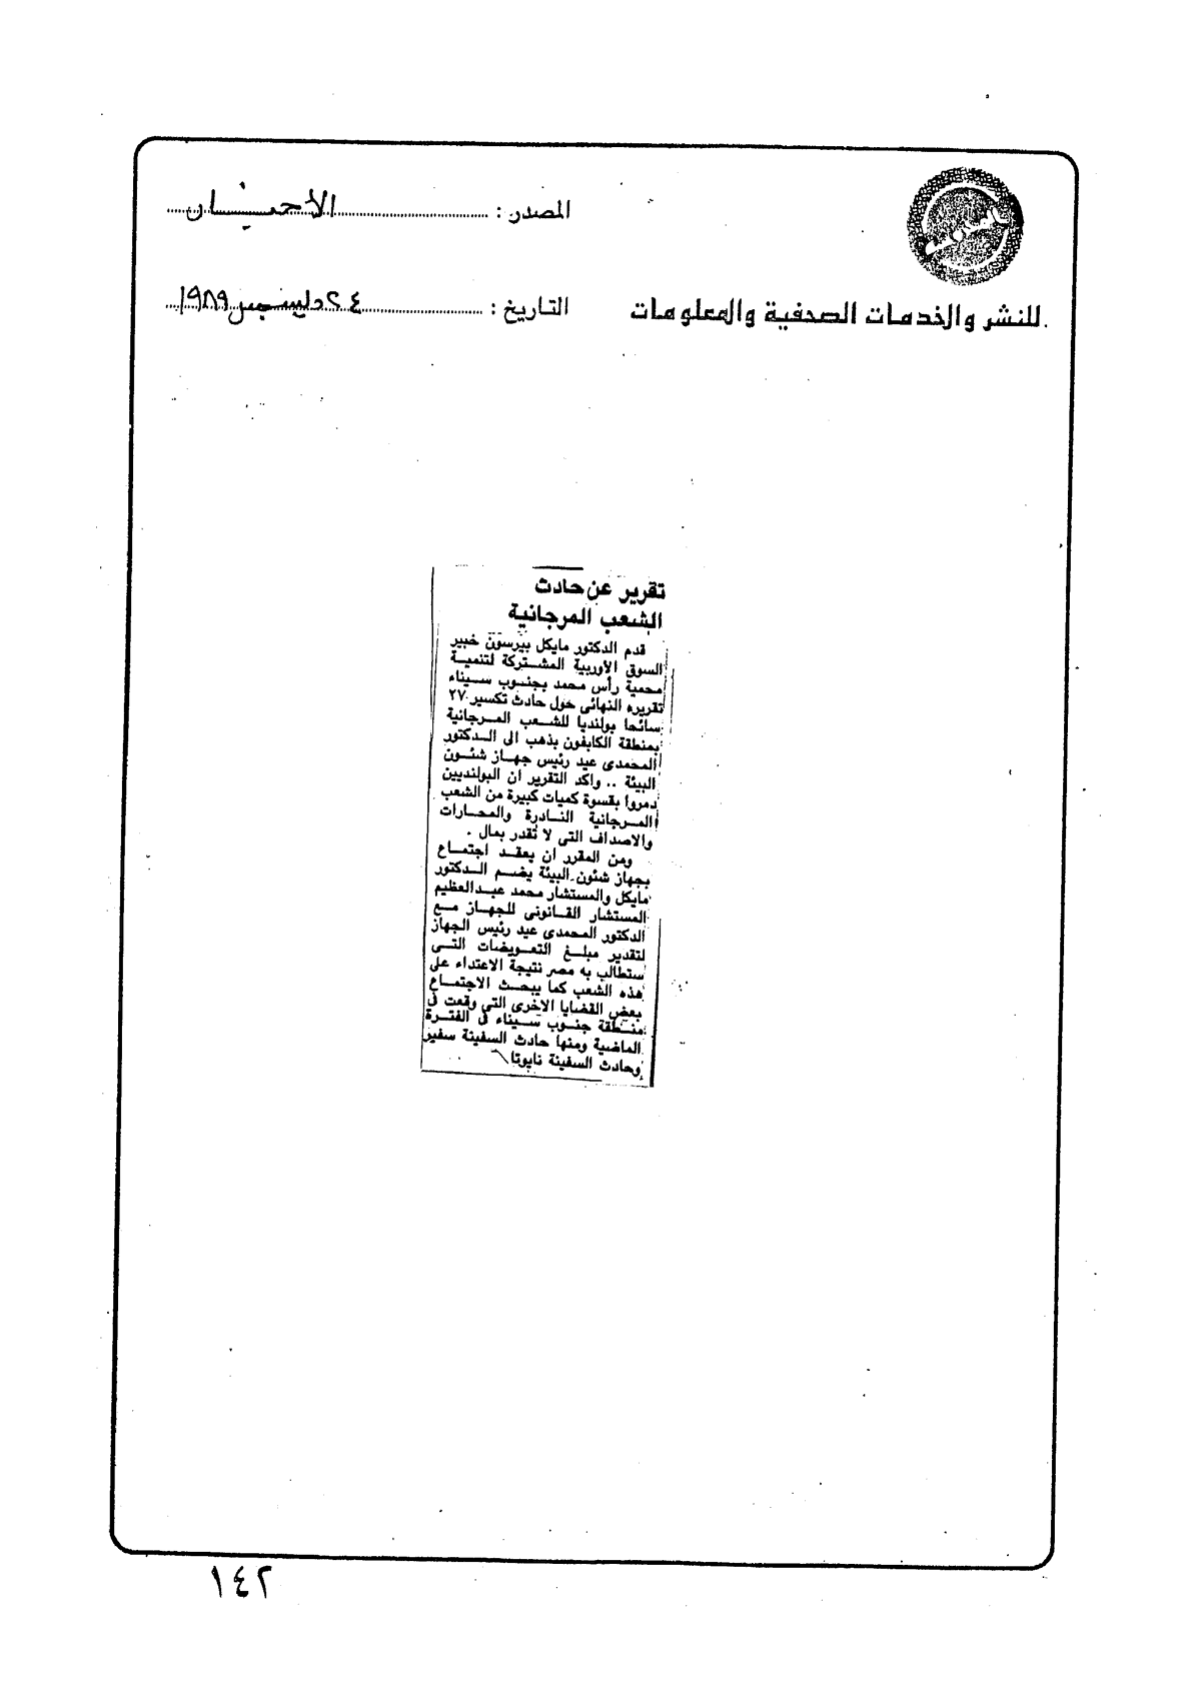 المصدر : الأخبار
التاريخ : ٢٤ ديسمبر ١٩٨٩
للنشر والخدمات الصحفية والمعلومات
تقرير عن حادث
الشعب المرجانية
قدم الدكتور مايكل بيرسون خبير
السوق الأوربية المشتركة لتنمية
محمية رأس محمد بجنوب سيناء
تقريره النهائى حول حادث تكسير ٢٧
سائحا بولنديا للشعب المرجانية
بمنطقة الكابفون بذهب الى الدكتور
المحمدى عيد رئيس جهاز شئون
البيئة .. واكد التقرير ان البولنديين
دمروا بقسوة كميات كبيرة من الشعب
المرجانية النادرة والمحارات
والاصداف التى لا تقدر بمال .
ومن المقرر ان يعقد اجتماع
بجهاز شئون البيئة يضم الدكتور
مايكل والمستشار محمد عبدالعظيم
المستشار القانونى للجهاز مع
الدكتور المحمدى عيد رئيس الجهاز
لتقدير مبلغ التعويضات التى
ستطالب به مصر نتيجة الاعتداء على
هذه الشعب كما يبحث الاجتماع
بعض القضايا الاخرى التى وقعت فى
منطقة جنوب سيناء فى الفترة
الماضية ومنها حادث السفينة سفير
وحادث السفينة نابوتا
١٤٢